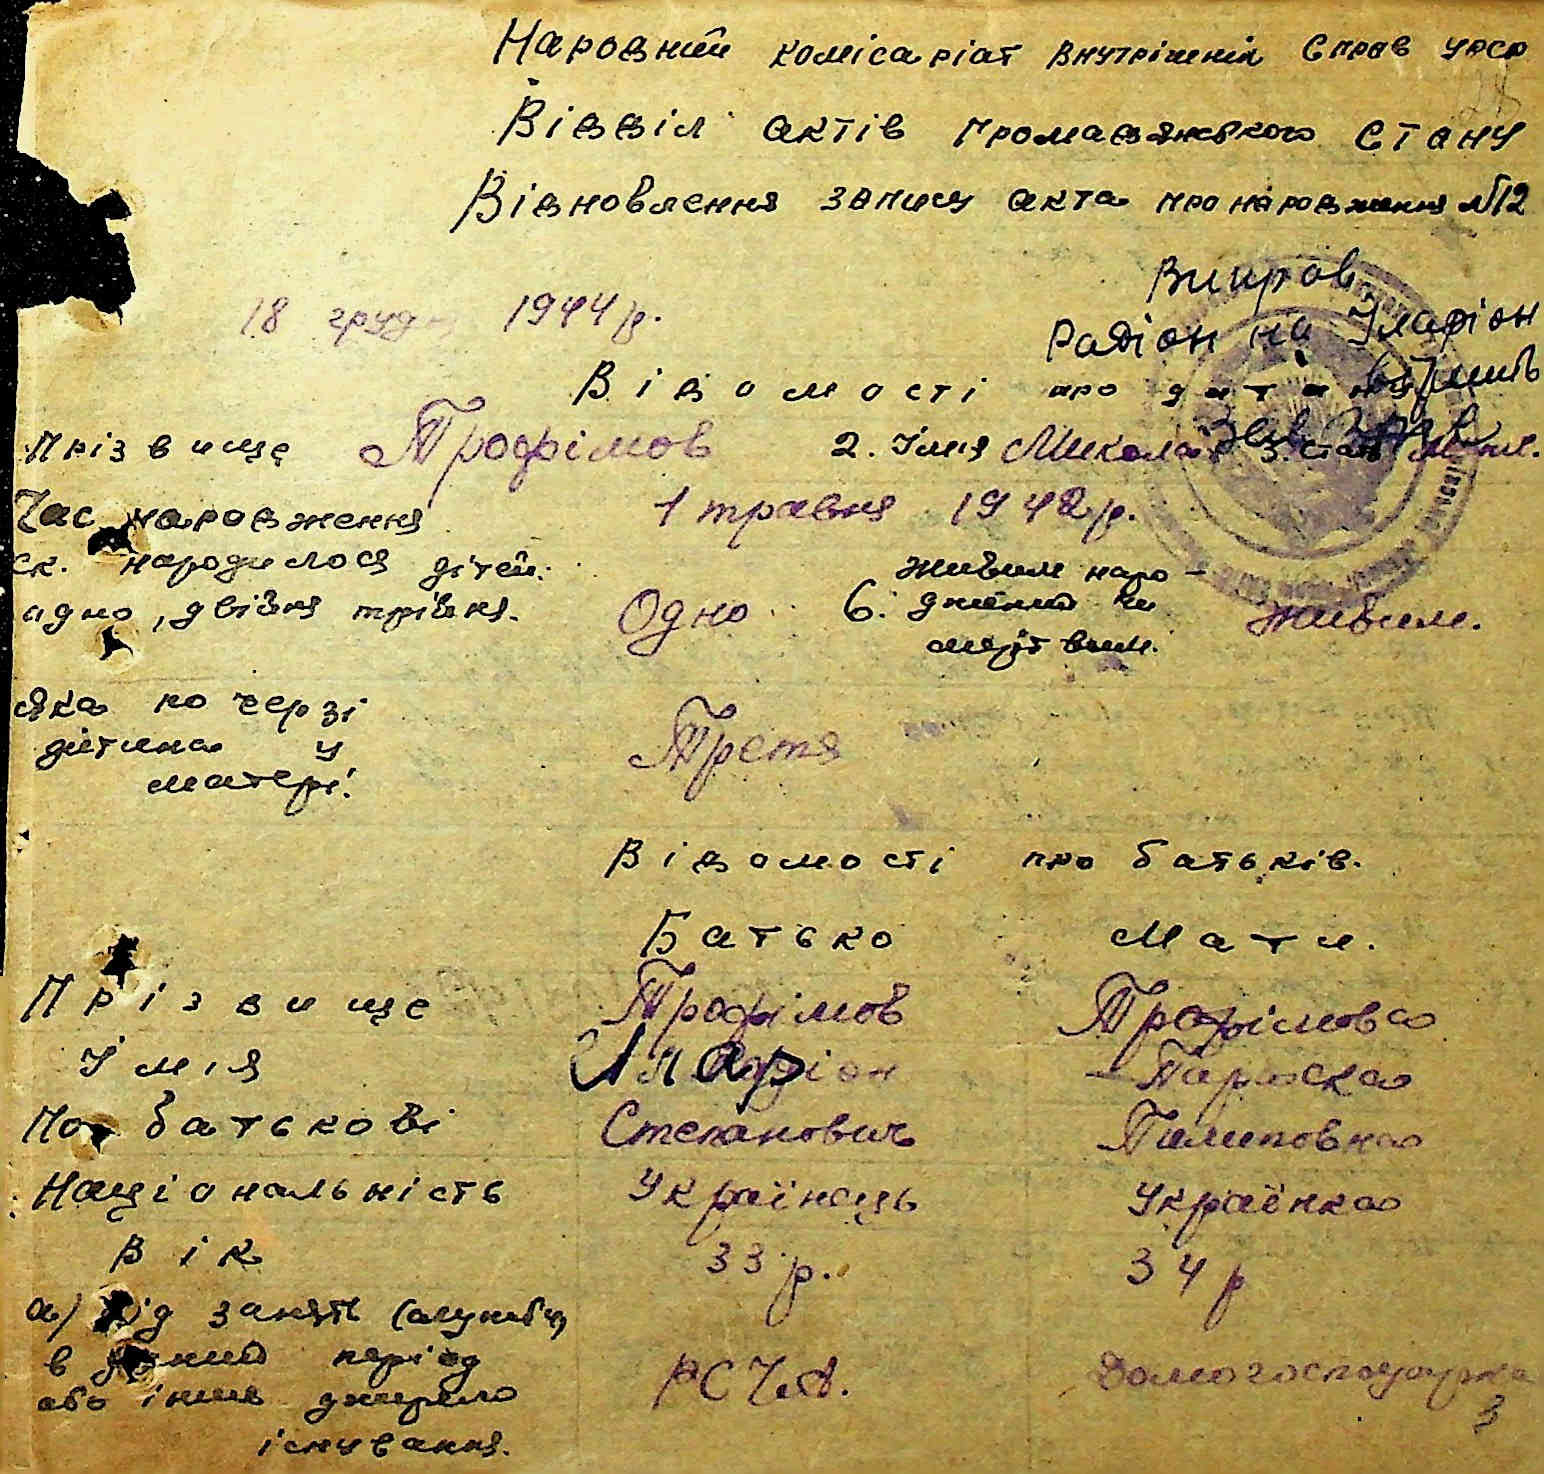 Народний комісаріат внутрішніх справ УРСР
Відділ актів громадянського стану
Відновлення запису акта про народження №12
Виправ
Радіон на Іларіон
18 груд 1944 р.
Відомості про дитину
Прізвище Трофімов 2. Імя Микола 3. стать чол.
Час народження 1 травня 1942 р.
ск. народилося дітей:
одно, двійня трійня. Одно 6. живим наро-
джений чи
мертвим. живим.
Яка по черзі
дитина у
матері. Третя
Відомості про батьків.
Батько Мати.
Прізвище Трофімов Трофімова
Імя Иларіон Параска
По батькові Степанович Пилиповна
Національність Українець Українка
Вік 33 р. 34 р
а) Рід занять (служби)
в даний період
або інше джерело
існування. РСЧА. Домогосподарка
3